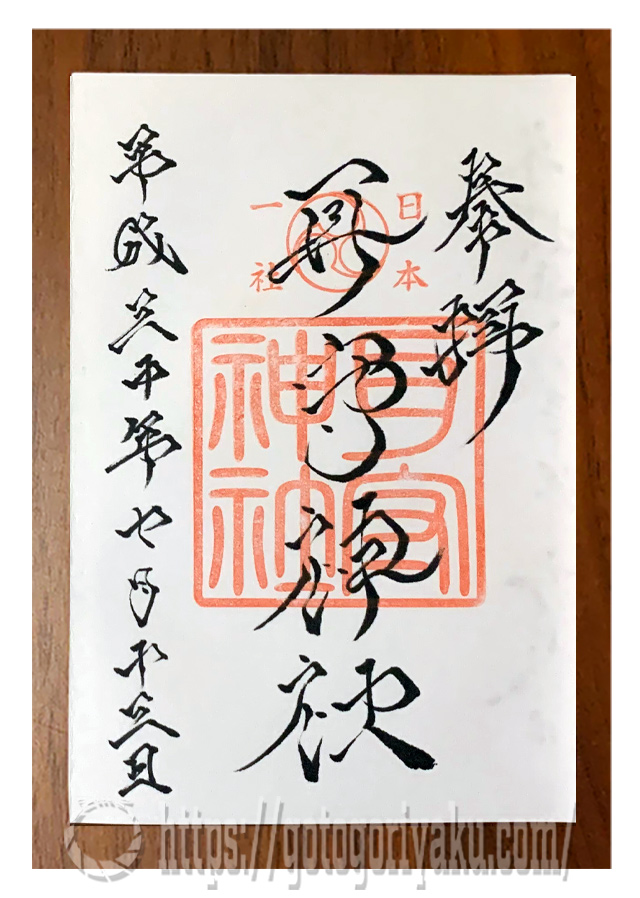 奉拝
日本
一社
神社
神社
平成三十年七月十三日
https://gotogoriyaku.com/